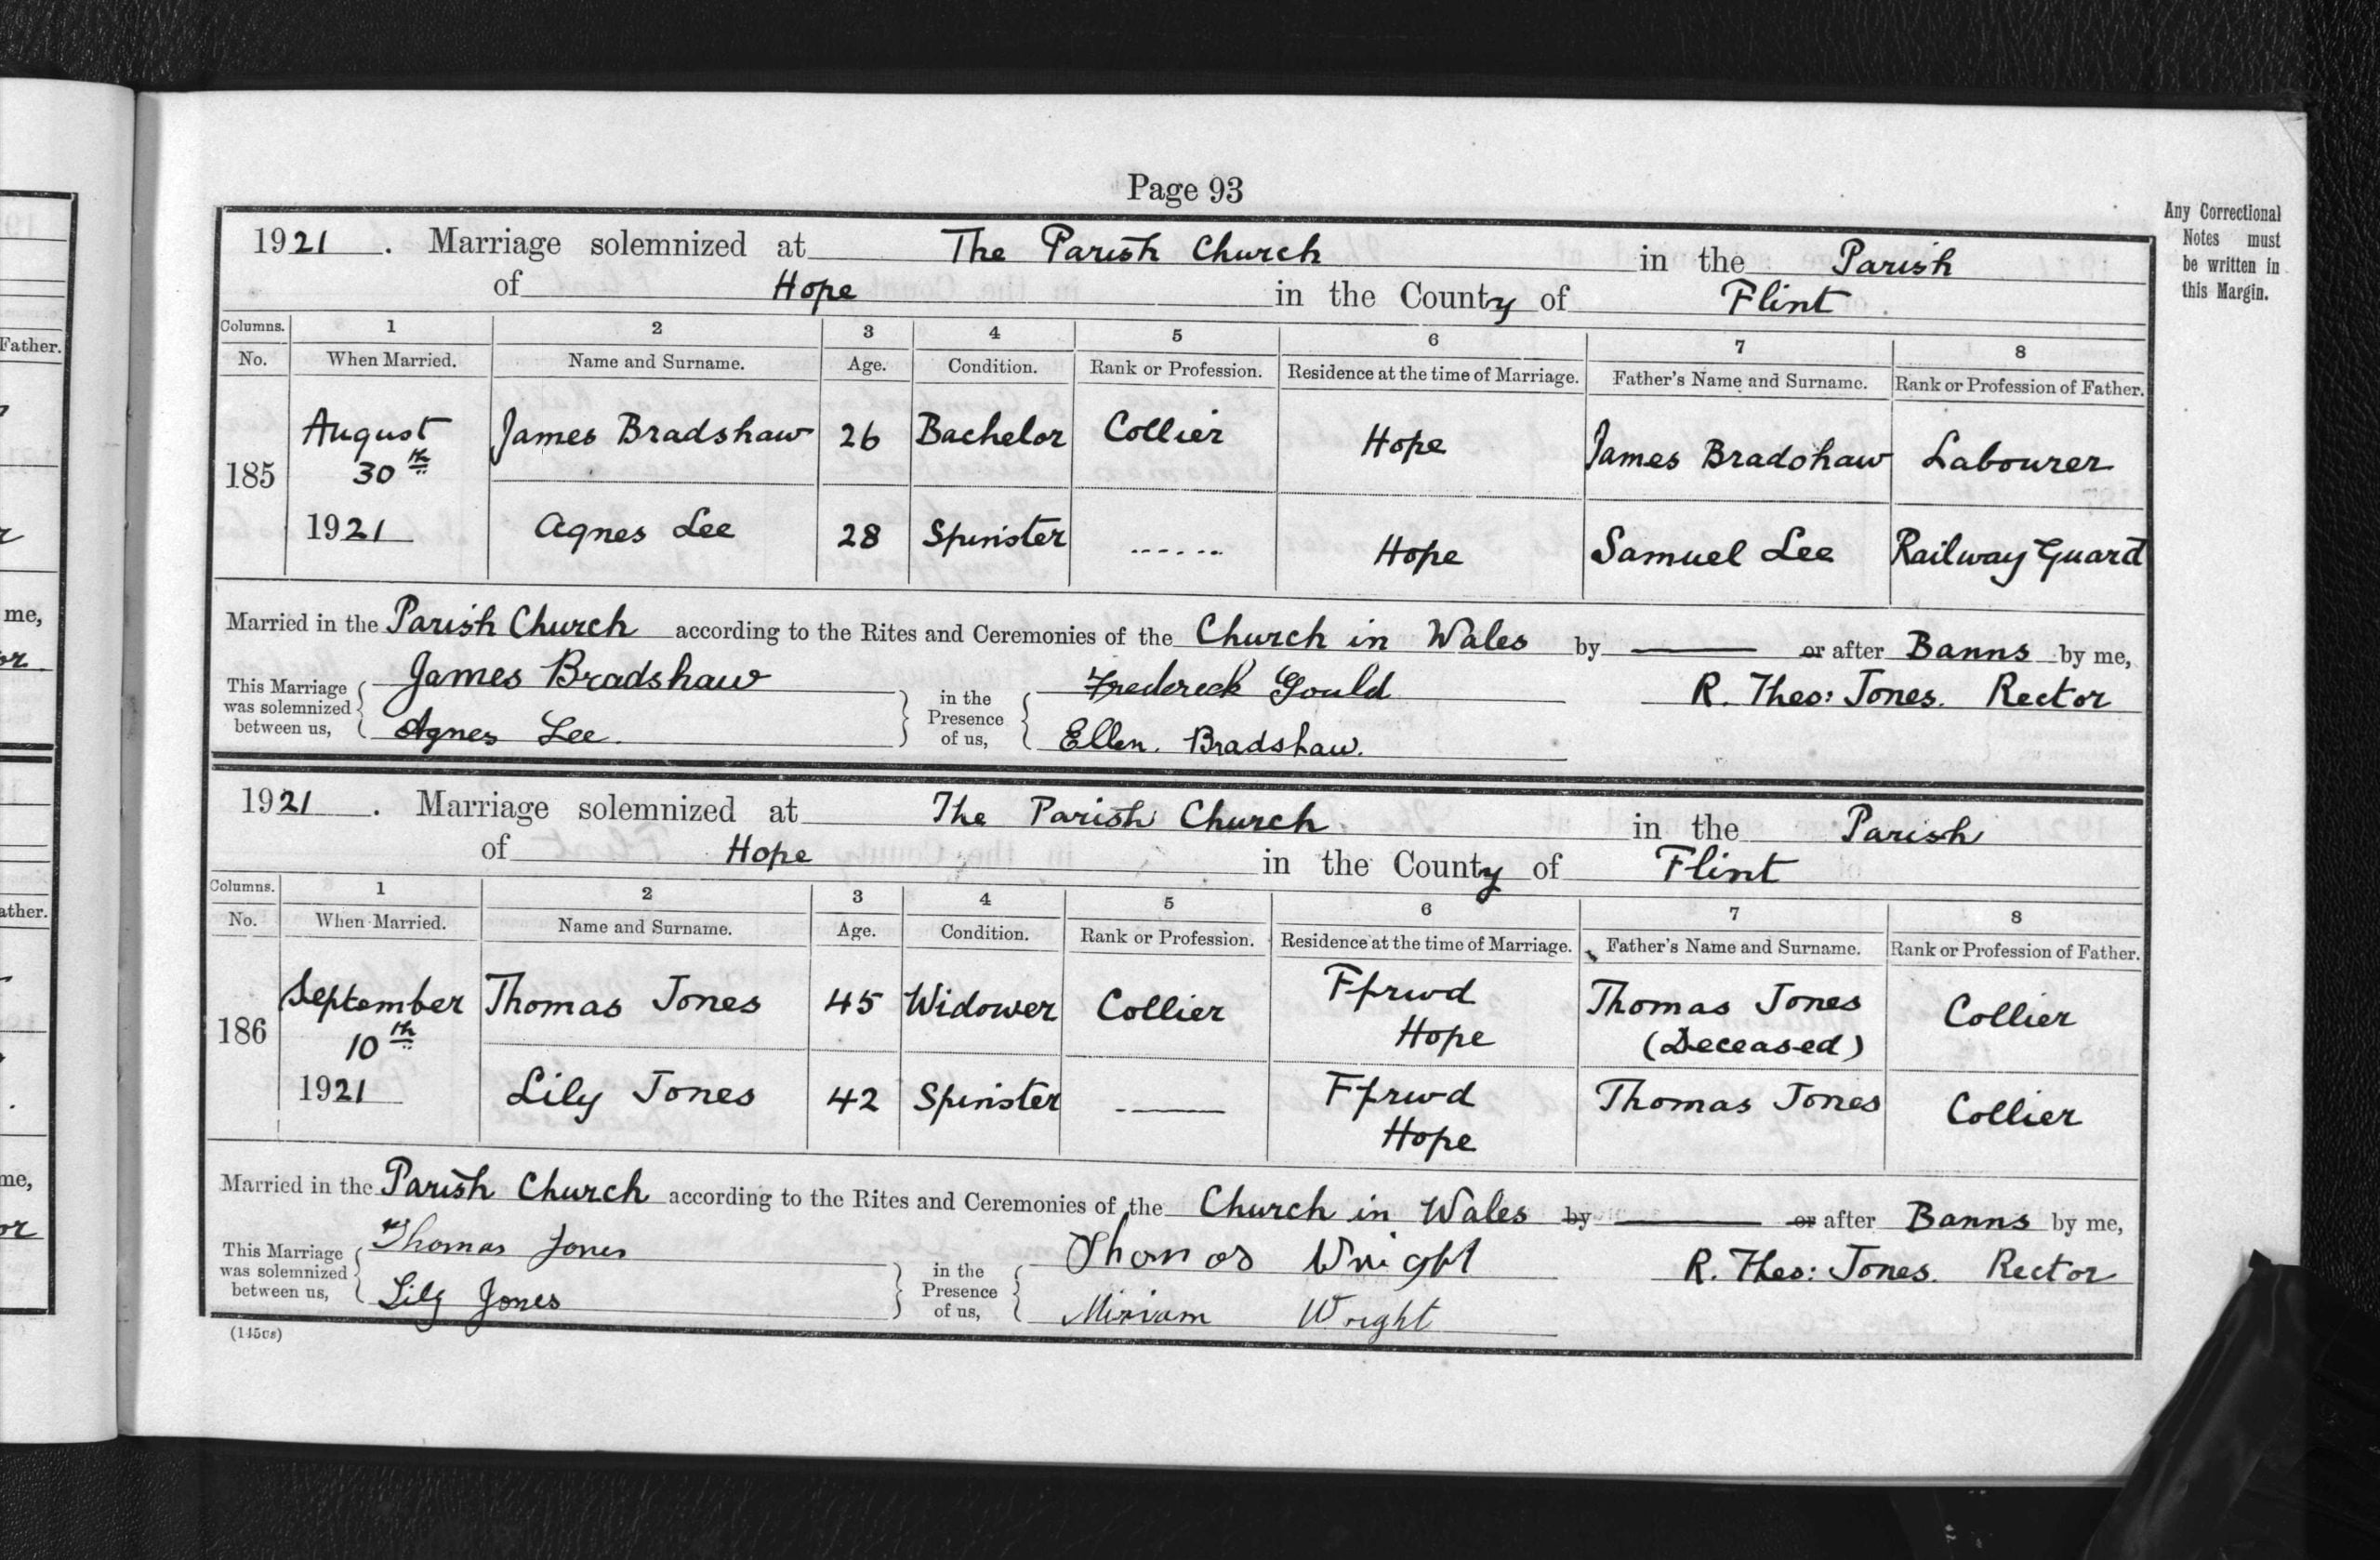 Page 93
Any Correctional
Notes must
be written in
this Margin.
1921. Marriage solemnized at The Parish Church in the Parish
of Hope in the County of Flint
Columns. 1 2 3 4 5 6 7 8
No. When Married. Name and Surname. Age. Condition. Rank or Profession. Residence at the time of Marriage. Father's Name and Surname. Rank or Profession of Father.
August James Bradshaw 26 Bachelor Collier Hope James Bradshaw Labourer
185 30th
1921 Agnes Lee 28 Spinster ...... Hope Samuel Lee Railway Guard
Married in the Parish Church according to the Rites and Ceremonies of the Church in Wales by —— or after Banns by me,
This Marriage was solemnized between us, James Bradshaw in the Presence of us, Frederick Gould R. Theo: Jones. Rector
Agnes Lee. Ellen. Bradshaw.
1921. Marriage solemnized at The Parish Church in the Parish
of Hope in the County of Flint
Columns. 1 2 3 4 5 6 7 8
No. When Married. Name and Surname. Age. Condition. Rank or Profession. Residence at the time of Marriage. Father's Name and Surname. Rank or Profession of Father.
September Thomas Jones 45 Widower Collier Ffrwd Thomas Jones Collier
186 10th Hope (Deceased)
1921 Lily Jones 42 Spinster —— Ffrwd Thomas Jones Collier
Hope
Married in the Parish Church according to the Rites and Ceremonies of the Church in Wales by —— or after Banns by me,
This Marriage was solemnized between us, Thomas Jones in the Presence of us, Thomas Wright R. Theo: Jones. Rector
Lily Jones Miriam Wright
Father.
me,
ather.
me,